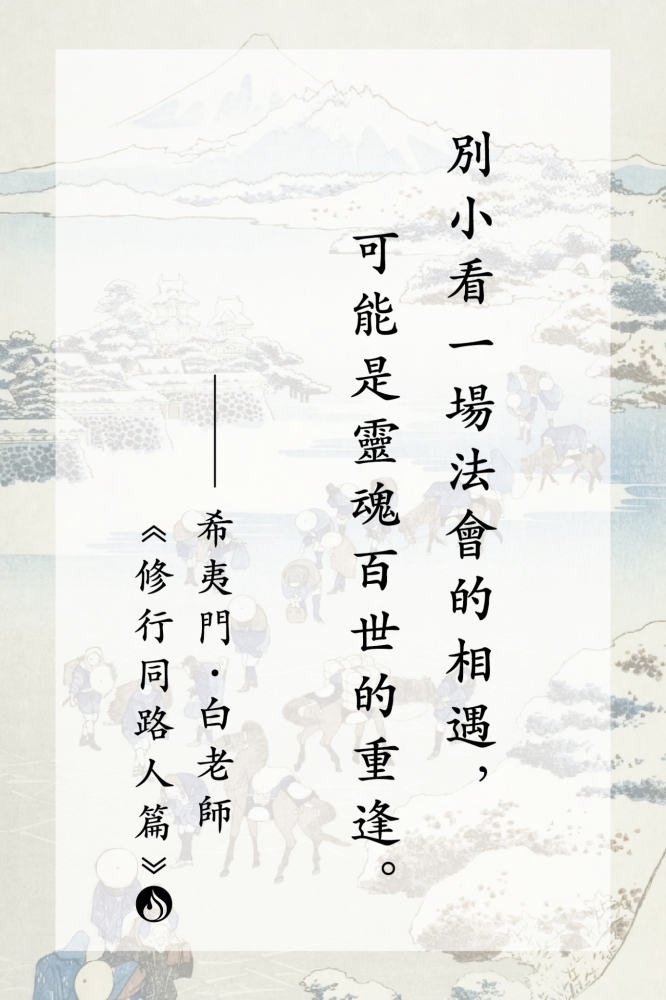 別小看一場法會的相遇，
可能是靈魂百世的重逢。
——希夷門・白老師
《修行同路人篇》